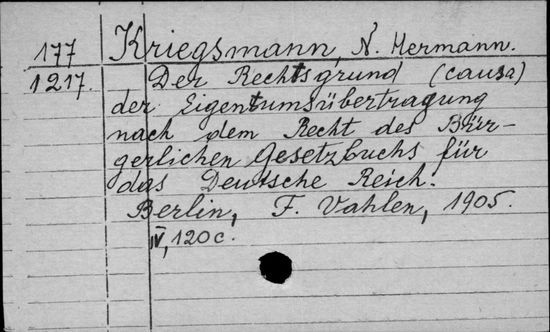 177 Kriegsmann, N. Hermann.
1217. Der Rechtsgrund (causa)
der Eigentumsübertragung
nach dem Recht des Bür-
gerlichen Gesetzbuchs für
das Deutsche Reich.
Berlin, F. Vahlen, 1905.
IV, 120 c.